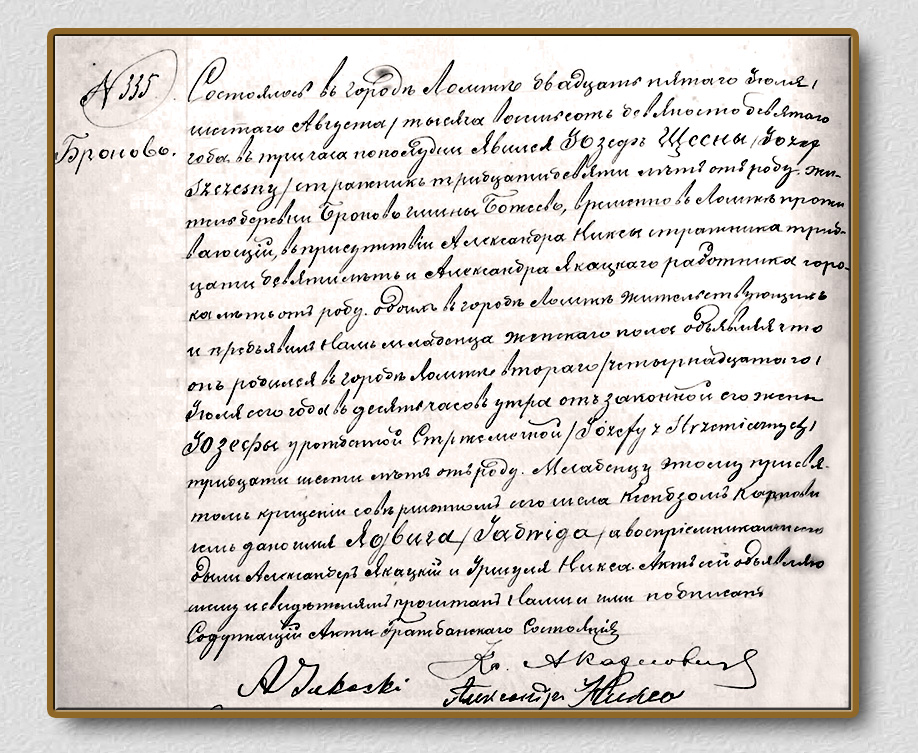 № 335.
Броново.
Состоялось въ городѣ Ломжѣ двадцать пятаго Іюля,
шестаго Августа/ тысяча восемьсотъ девяносто девятаго
года въ три часа пополудни. Явился Іозефъ Щесны /Iozef
Szczesny/ стражникъ тридцати девяти лѣтъ отъ роду. жи-
тель деревни Броново гмины Божево, временно въ Ломжѣ прожи
вающій, въ присутствіи Александра Никсы стражника трид-
цати девяти лѣтъ и Александра Якацкаго работника соро-
ка лѣтъ отъ роду. обоихъ въ городѣ Ломжѣ жительствующихъ
и предъявилъ Намъ младенца женскаго пола объявляя что
онъ родился въ городѣ Ломжѣ втораго /четырнадцатаго/
Іюля сего года въ десять часовъ утра отъ законной его жены
Іозефы урожденной Стржемечной /Józefy z Strzemiecznych/
тридцати шести лѣтъ отъ роду. Младенцу этому при свя-
томъ крещеніи совершонномъ сего числа Ксендзомъ
дано имя Ядвига /Jadwiga/ а воспріемниками
были Александръ Якацкій и Никса. Актъ сей объявляю
щему и свидѣтелямъ прочитанъ Нами и ими подписанъ
Содержащій Акты Гражданскаго Состоянія
Кс.
Александръ Никса